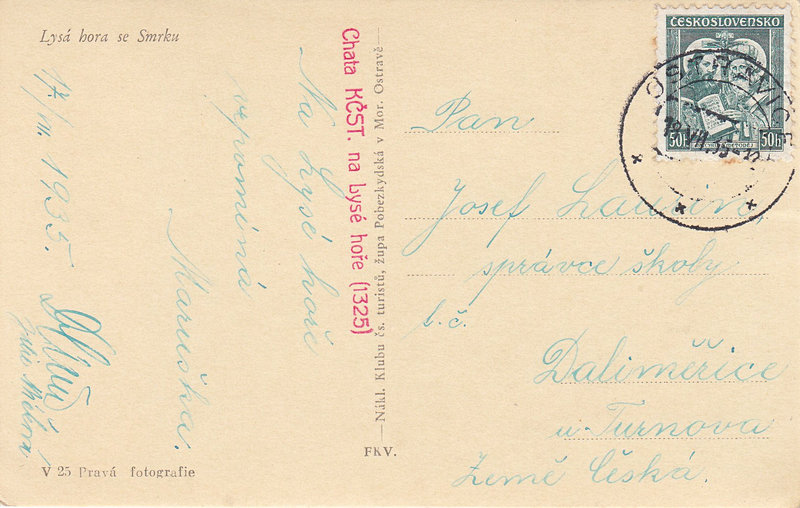 Lysá hora se Smrku
17/VII. 1935.
Na Lysé hoře
vzpomíná
Maruška.
V 25 Pravá fotografie
Chata KČST. na Lysé hoře (1325)
—Nákl. Klubu čs. turistů, župa Pobezkydská v Mor. Ostravě—
FKV.
ČESKOSLOVENSKO
50h 50h
OSTRAVICE
Pan
Josef
správce školy
b.č.
Daliměřice
u Turnova
Země Česká.